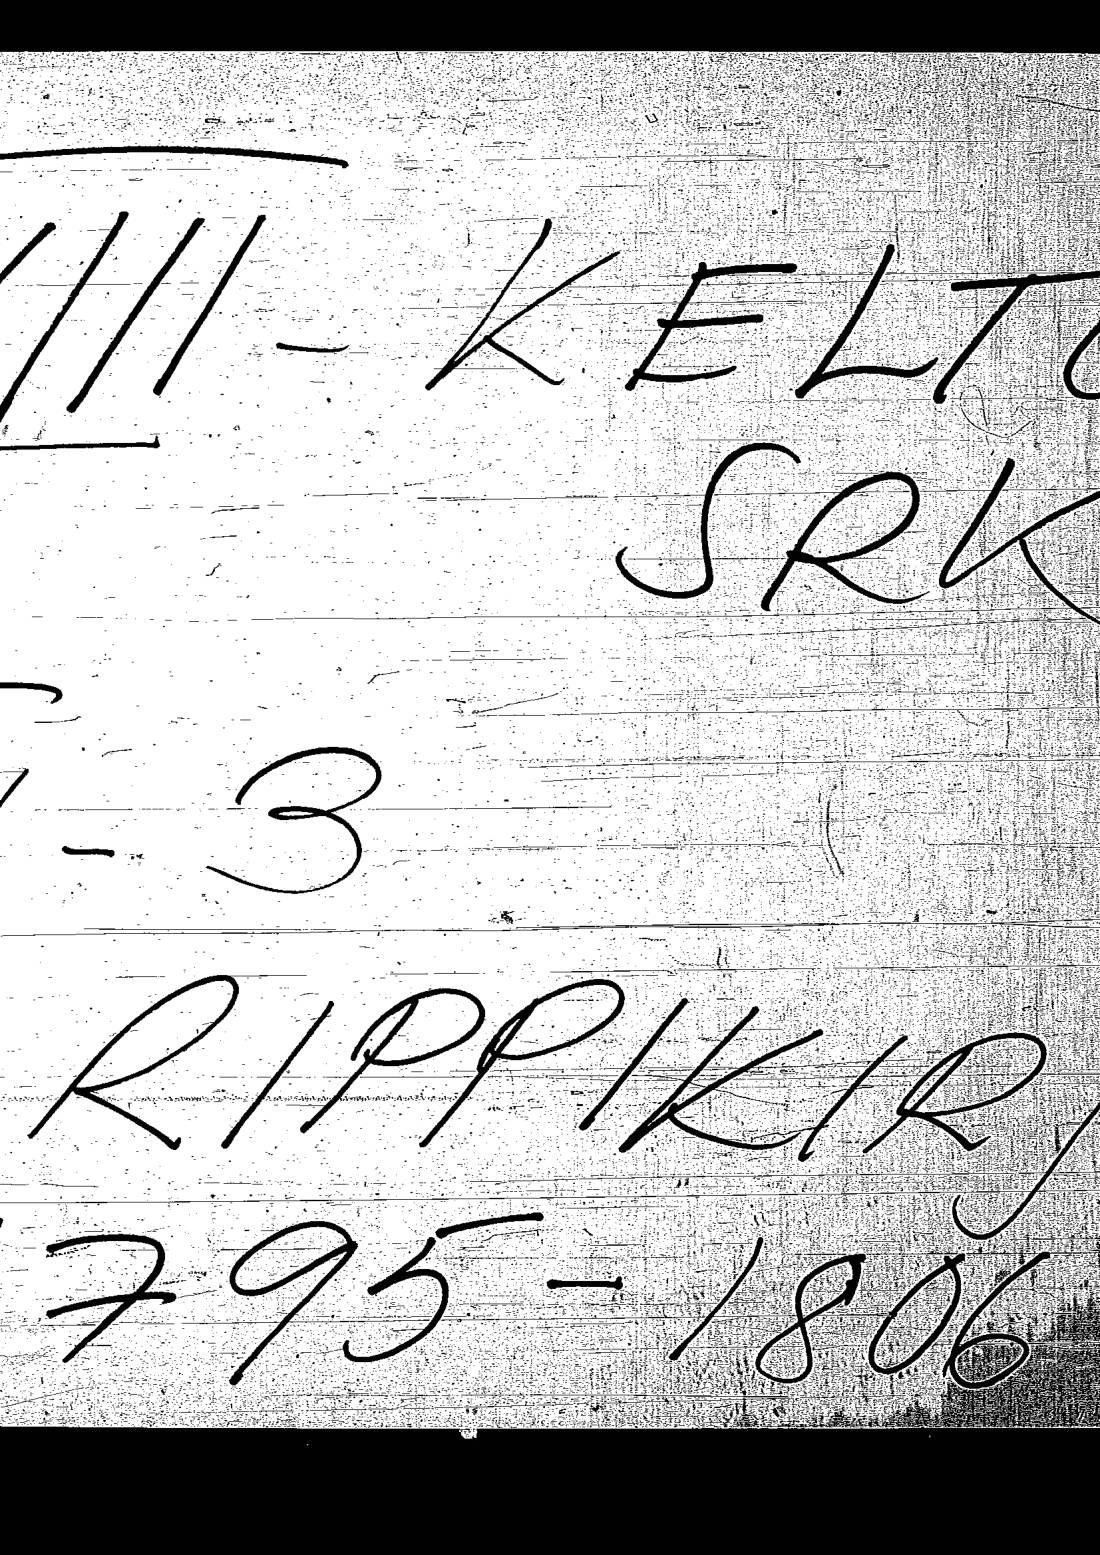 III - KELTO
SRK
- 3
RIPPIKIRJ
795-1806